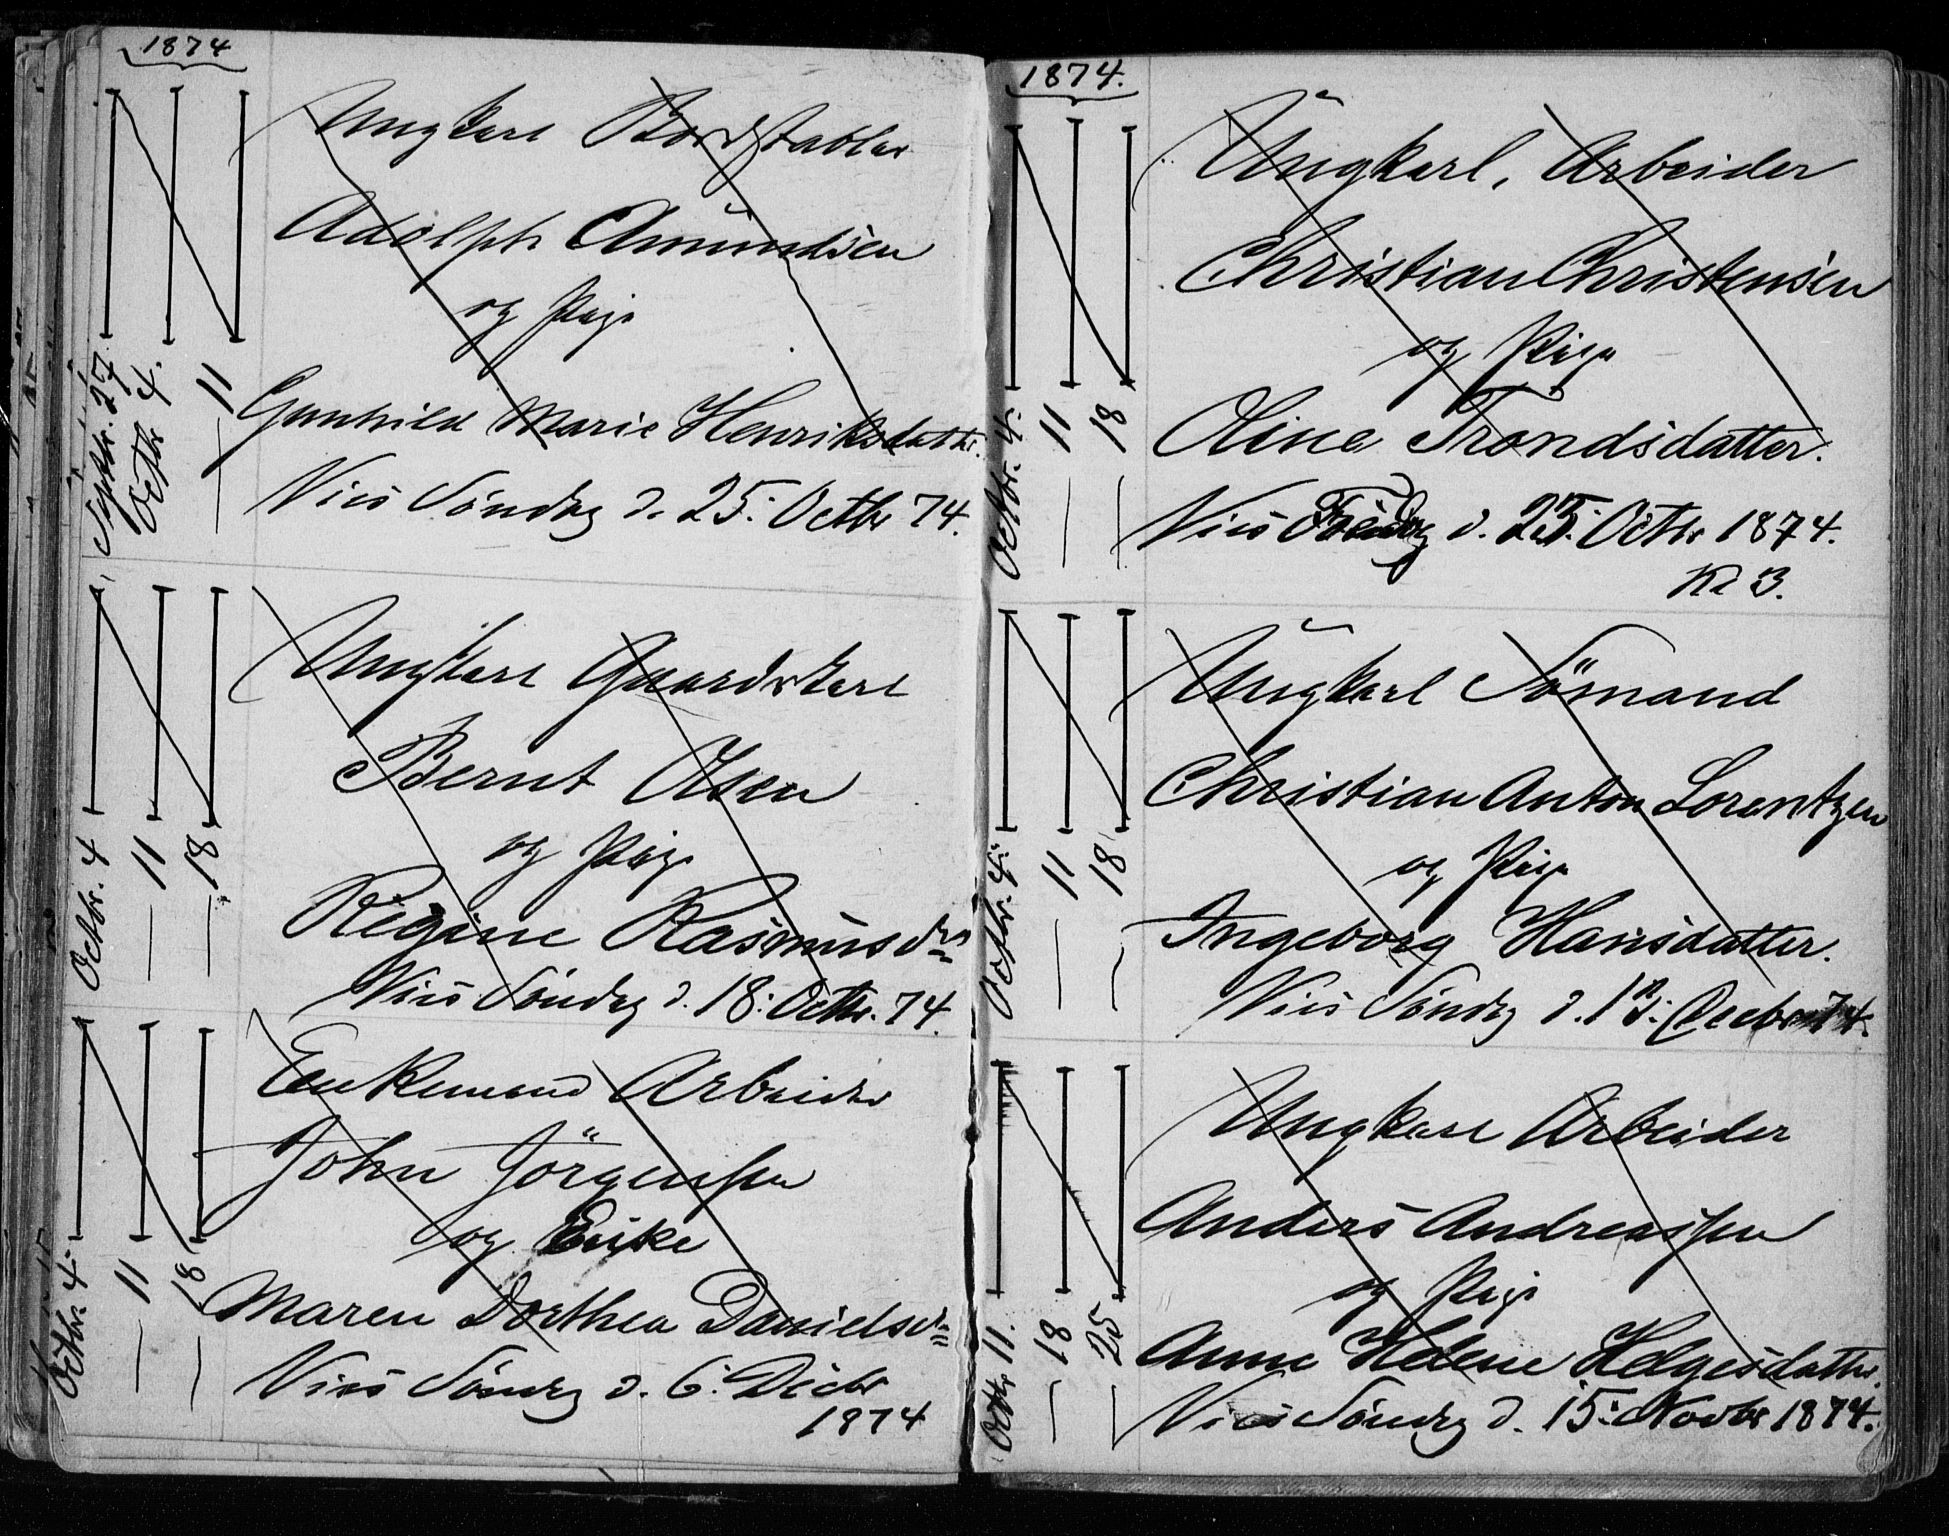 1874
Septbr. 27.
Octbr 4.
— 11
Ungkarl Bordstabler
Adolph Amundsen
og Pige
Gunhild Marie Henriksdatter.
Vies Søndag d. 25. Octbr 74.
Octbr. 4
— 11
— 18
Ungkarl Gaardskarl
Bernt Olsen
og Pige
Regine Rasmusdr
Vies Søndag d. 18. Octbr. 74.
Octbr. 4
— 11
— 18
Enkemand Arbeider
John Jörgenssen
og Enke
Maren Dorthea Danielsdr
Vies Søndag d. 6. Decbr
1874
1874.
Octbr. 4.
— 11
— 18
Ungkarl, Arbeider
Christian Christensen
og Pige
Oline Trondsdatter.
Vies d. Octbr 1874.
Kl 3.
Octbr. 4.
— 11
— 18
Ungkarl Sömand
Christian Anton Lorentzen
og Pige
Ingeborg Hansdatter.
Vies Søndag d. 13. Decbr 74.
Octbr 11.
— 18
— 25
Ungkarl Arbeider
Anders Andreassen
og Pige
Anne Helene Helgesdatter.
Vies Søndag d. 15. Novbr 1874.